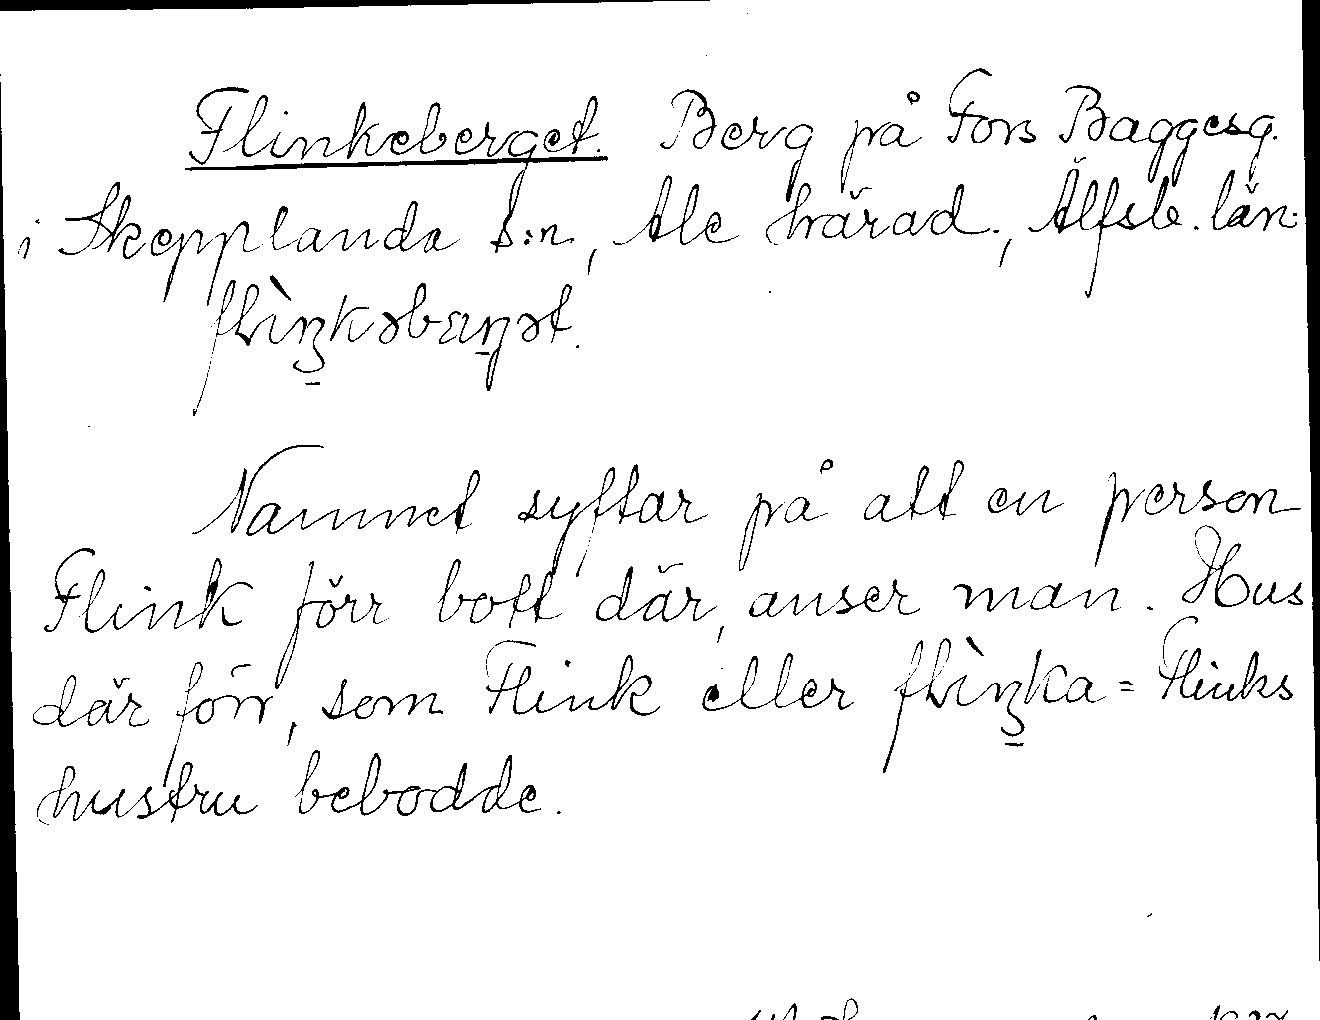 Flinkeberget. Berg på Fors Baggesg.
i Skepplanda s:n, Ale härad, Älfsb. län.
Namnet syftar på att en person
Flink förr bott där, anser man. Hus
där förr, som Flink eller = Flinks
hustru bebodde.